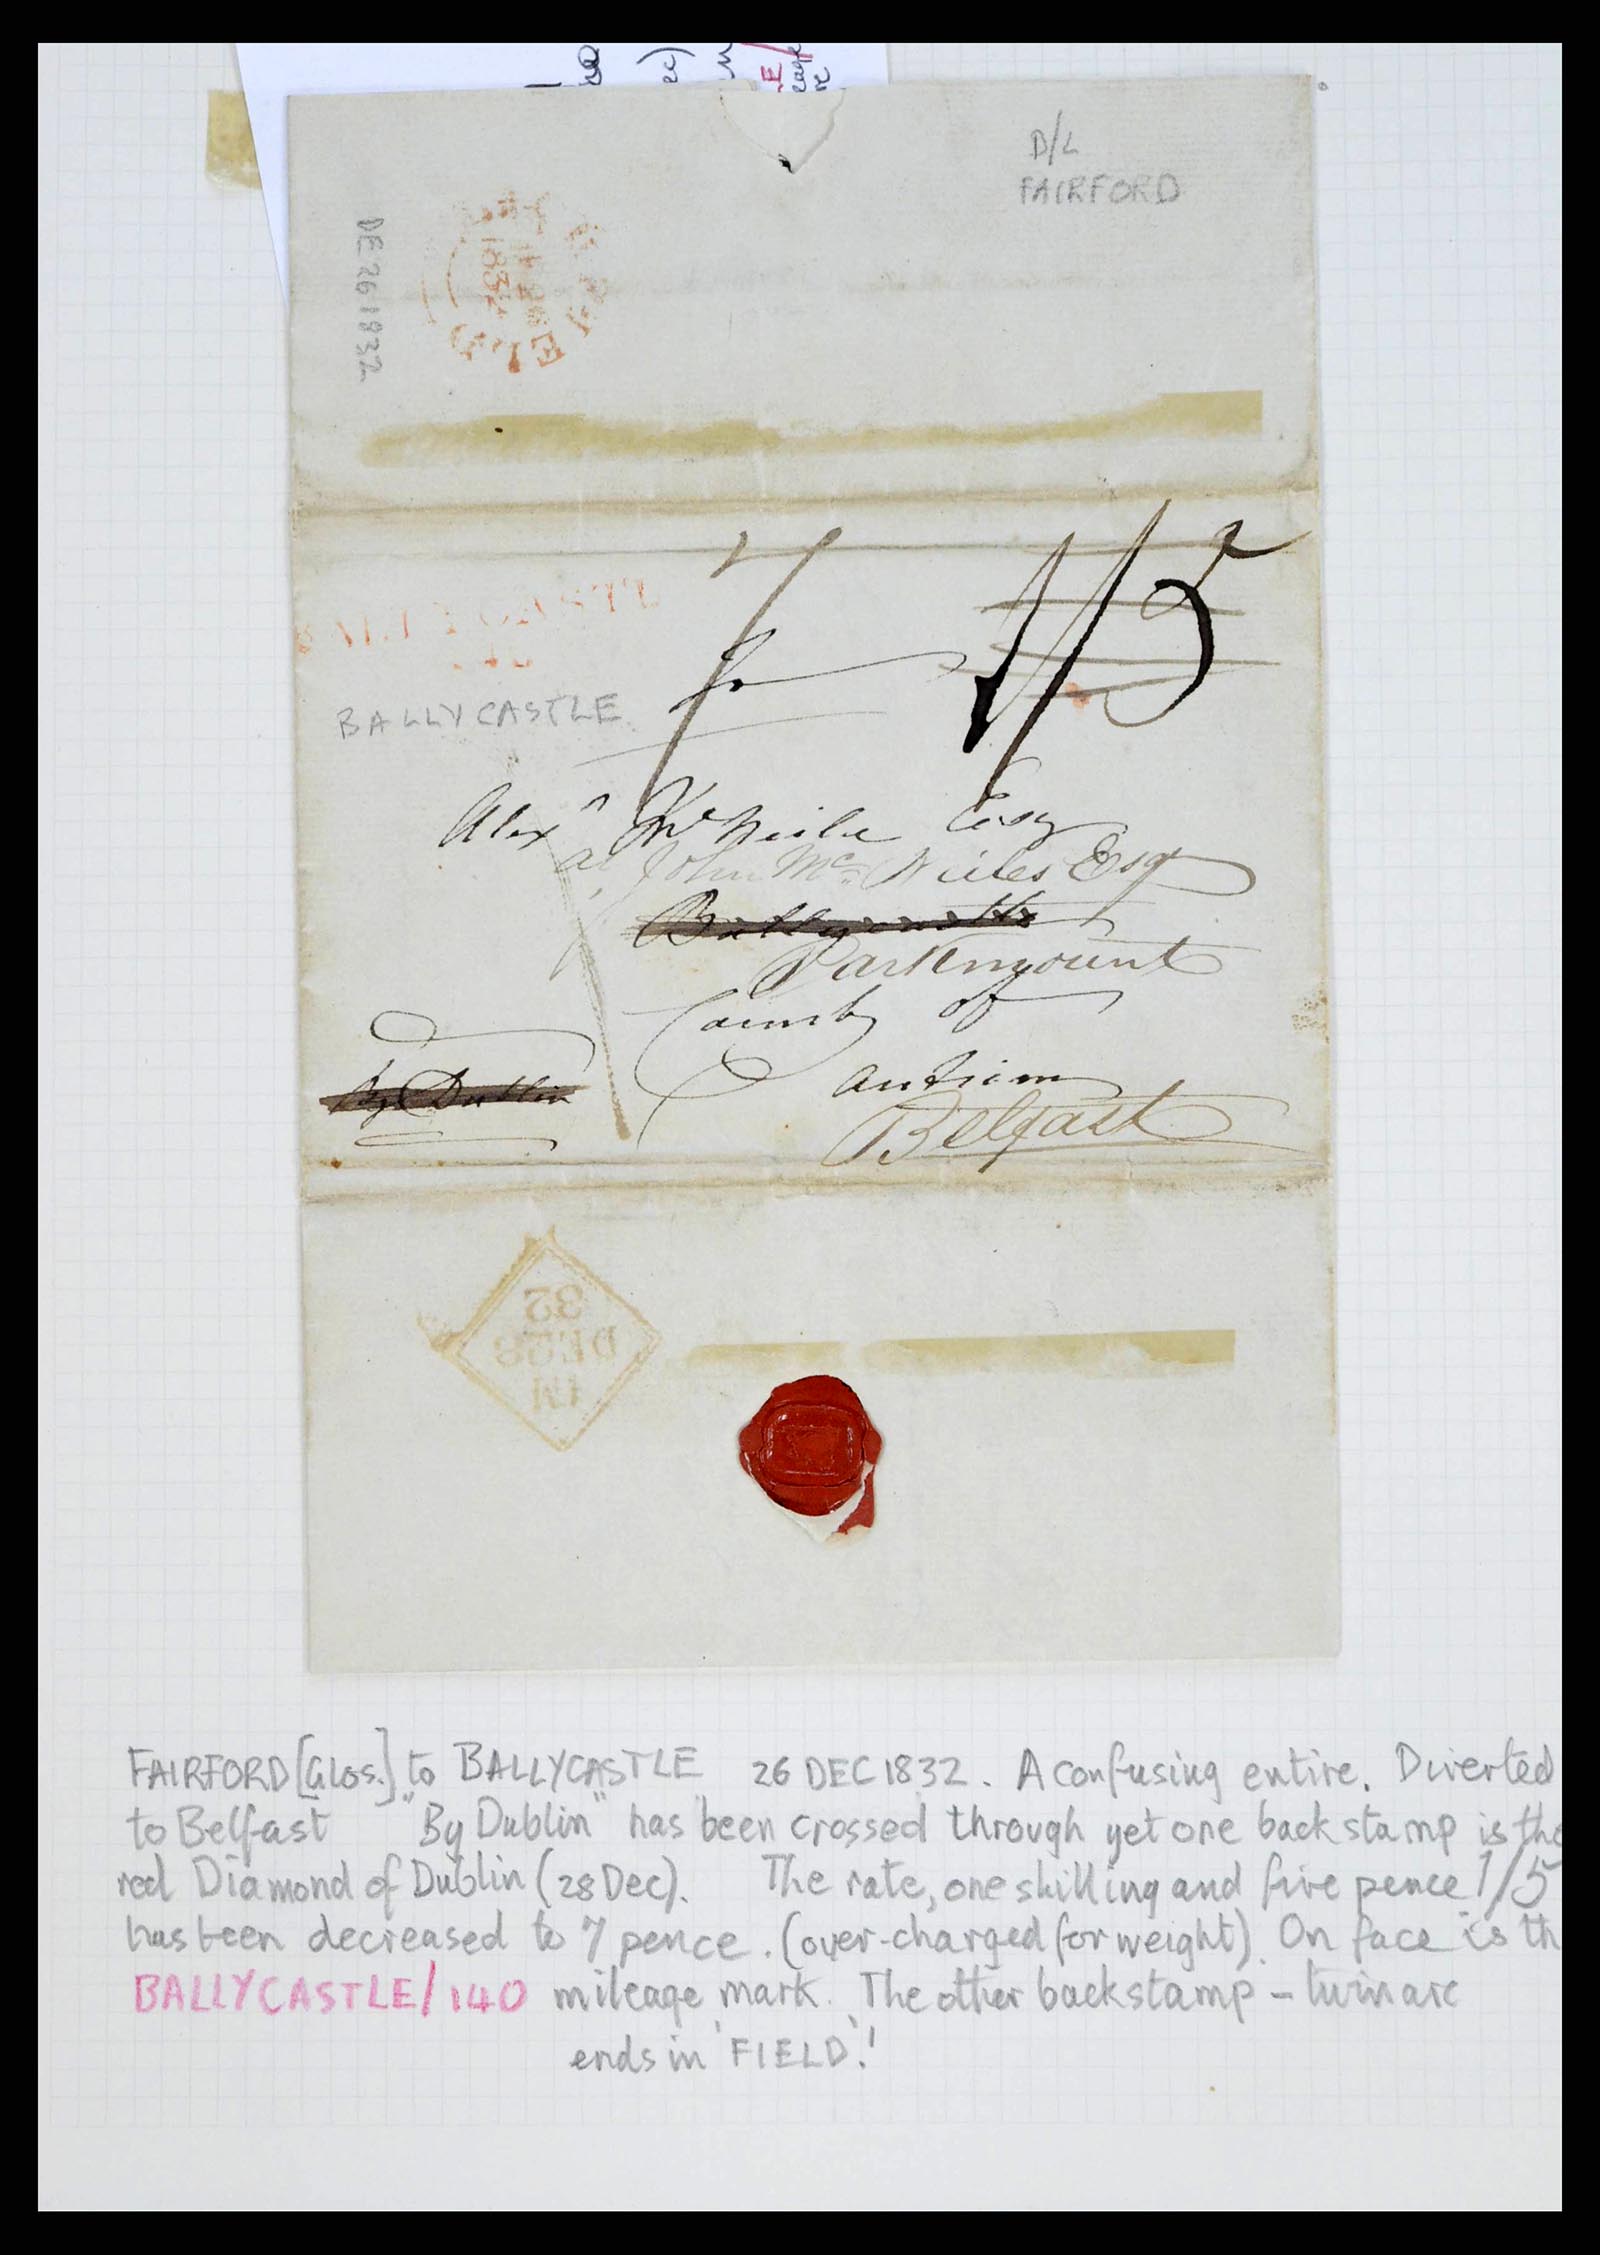 D/L
FAIRFORD
DE 26 1832
1832
BALLYCASTLE
7
1/5
BALLYCASTLE
Alexr McNeile Esq
at John McNeiles Esq
Ballycastle
Parkmount
County of
Antrim
By Dublin
Belfast
1M
DE28
32
FAIRFORD [GLOS.] to BALLYCASTLE 26 DEC 1832. A confusing entire. Diverted
to Belfast "By Dublin" has been crossed through yet one back stamp is the
red Diamond of Dublin (28 Dec). The rate, one shilling and five pence 1/5
has been decreased to 7 pence. (over-charged for weight). On face is th
BALLYCASTLE/140 mileage mark. The other backstamp - twin arc
ends in 'FIELD'.!